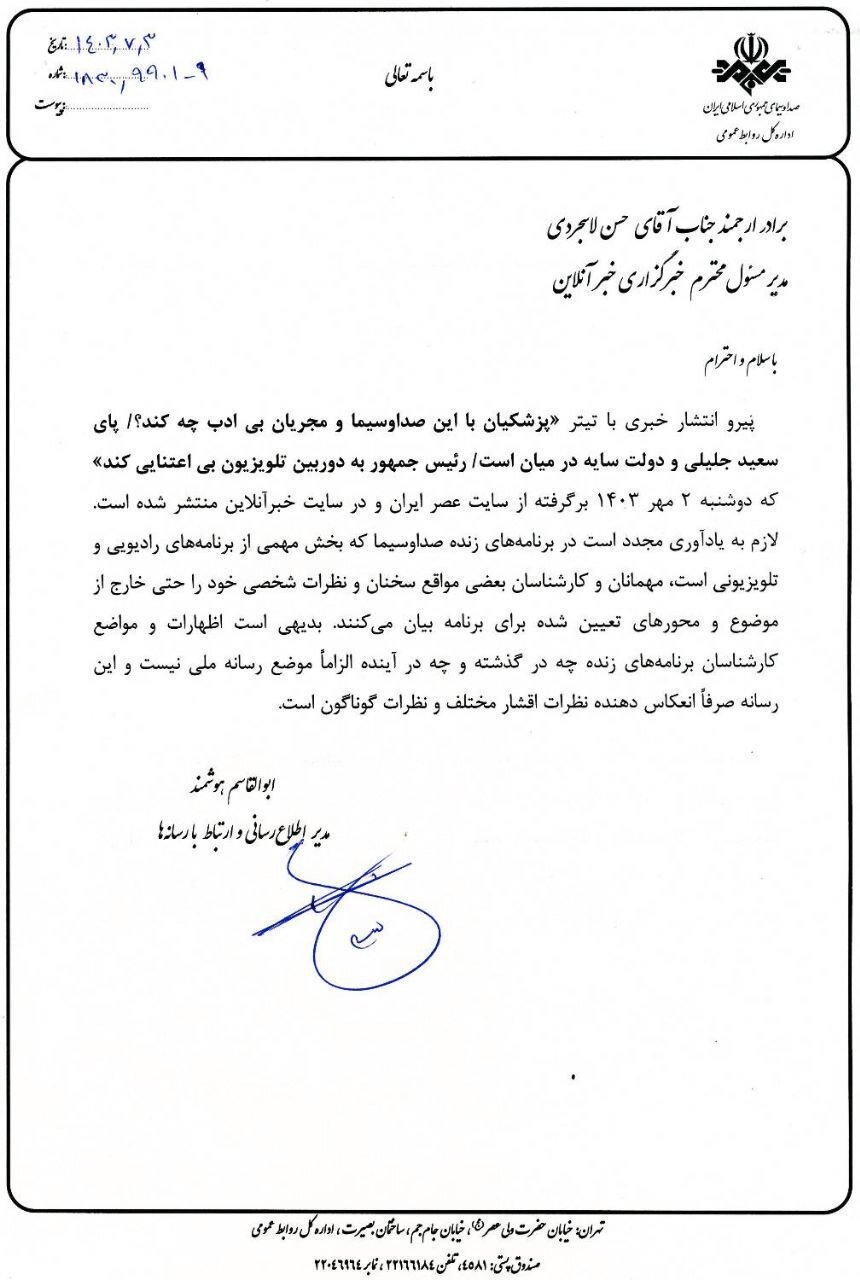 باسمه تعالی
صدا و سیمای جمهوری اسلامی ایران
اداره کل روابط عمومی
تاریخ: ۱۴۰۳٫۷٫۳
شماره: ۱۸۳۰٫۹۹۰۱-۹
پیوست:
برادر ارجمند جناب آقای حسن لاسجردی
مدیر مسئول محترم خبرگزاری خبرآنلاین
باسلام و احترام
پیرو انتشار خبری با تیتر «پزشکیان با این صداوسیما و مجریان بی ادب چه کند؟/ پای
سعید جلیلی و دولت سایه در میان است/ رئیس جمهور به دوربین تلویزیون بی اعتنایی کند»
که دوشنبه ۲ مهر ۱۴۰۳ برگرفته از سایت عصر ایران و در سایت خبرآنلاین منتشر شده است.
لازم به یادآوری مجدد است در برنامه‌های زنده صداوسیما که بخش مهمی از برنامه‌های رادیویی و
تلویزیونی است، مهمانان و کارشناسان بعضی مواقع سخنان و نظرات شخصی خود را حتی خارج از
موضوع و محورهای تعیین شده برای برنامه بیان می‌کنند. بدیهی است اظهارات و مواضع
کارشناسان برنامه‌های زنده چه در گذشته و چه در آینده الزاماً موضع رسانه ملی نیست و این
رسانه صرفاً انعکاس دهنده نظرات اقشار مختلف و نظرات گوناگون است.
ابوالقاسم هوشمند
مدیر اطلاع‌رسانی و ارتباط با رسانه‌ها
تهران: خیابان حضرت ولی عصر(عج)، خیابان جام جم، ساختمان بصیرت، اداره کل روابط عمومی
صندوق پستی: ۴۵۸۱، تلفن ۲۲۱۶۶۱۸۴، نمابر ۲۲۰۴۶۹۶۴